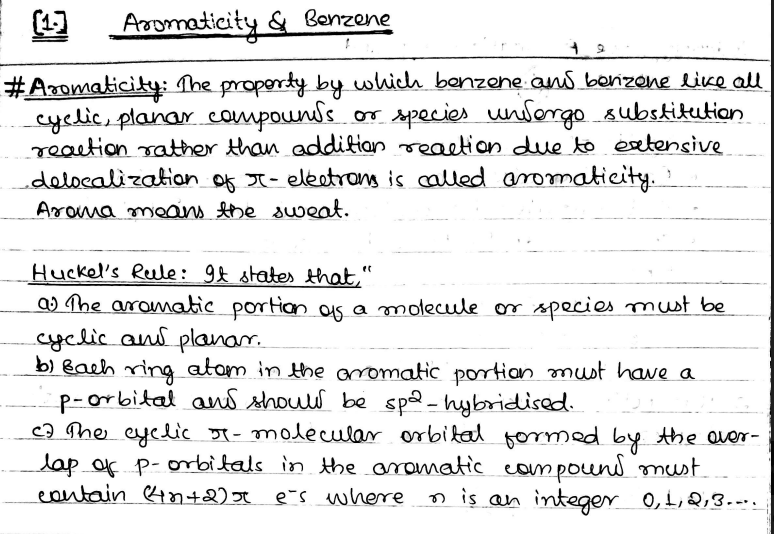 [1.] Aromaticity & Benzene
# Aromaticity: The property by which benzene and benzene like all
cyclic, planar compounds or species undergo substitution
reaction rather than addition reaction due to extensive
delocalization of π-electrons is called aromaticity.
Aroma means the sweat.
Huckel's Rule: It states that,"
a) The aromatic portion of a molecule or species must be
cyclic and planar.
b) Each ring atom in the aromatic portion must have a
p-orbital and should be sp2-hybridised.
c) The cyclic π-molecular orbital formed by the over-
lap of p-orbitals in the aromatic compound must
contain (4n+2)π e-s where n is an integer 0,1,2,3....